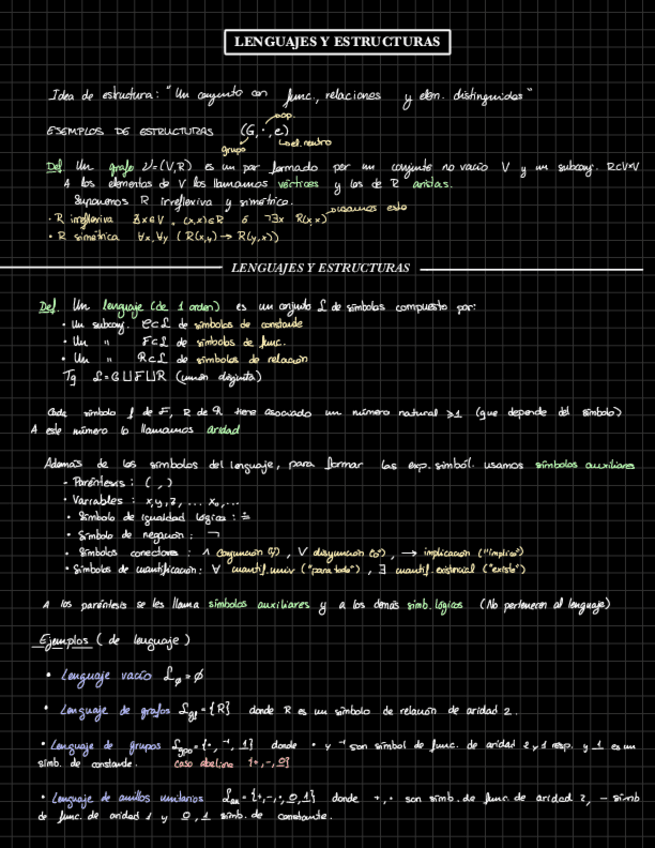 LENGUAJES Y ESTRUCTURAS
Idea de estructura: "Un conjunto con func., relaciones y elem. distinguidos"
EJEMPLOS DE ESTRUCTURAS (G, ·, e)
op.
grupo
el. neutro
Def Un grafo V=(V,R) es un par formado por un conjunto no vacío V y un subconj. R⊂V×V
A los elementos de V los llamamos vértices y los de R aristas.
Suponemos R irreflexiva y simétrica.
usamos esto
· R irreflexiva ∄x∈V . (x,x)∈R ó ¬∃x R(x,x)
· R simétrica ∀x,∀y (R(x,y) → R(y,x))
LENGUAJES Y ESTRUCTURAS
Def. Un lenguaje (de 1 orden) es un conjunto L de símbolos compuesto por:
· Un subconj. C⊂L de símbolos de constante
· Un " F⊂L de símbolos de func.
· Un " R⊂L de símbolos de relación
Tq L=C⊔F⊔R (unión disjunta)
Cada símbolo f de F, R de R tiene asociado un número natural ≥1 (que depende del símbolo)
A este número lo llamamos aridad
Además de los símbolos del lenguaje, para formar las exp. simból. usamos símbolos auxiliares
· Paréntesis : ( , )
· Variables : x, y, z, ... x₀, ...
· Símbolo de igualdad lógica : ≐
· Símbolo de negación : ¬
· Símbolos conectores : ∧ conjunción (y) , ∨ disyunción (o) , → implicación ("implica")
· Símbolos de cuantificación: ∀ cuantif. univ ("para todo") , ∃ cuantif. existencial ("existe")
A los paréntesis se les llama símbolos auxiliares y a los demás simb. lógicos (No pertenecen al lenguaje)
Ejemplos ( de lenguaje )
· Lenguaje vacío L∅ = ∅
· Lenguaje de grafos Lgf = {R} donde R es un símbolo de relación de aridad 2.
· Lenguaje de grupos Lgpo = {·, ⁻¹, 1} donde · y ⁻¹ son símbol de func. de aridad 2 y 1 resp. y 1 es un
simb. de constante. caso abeliano {+, -, 0}
· Lenguaje de anillos unitarios Lan = {+, -, ·, 0, 1} donde +, · son simb. de func. de aridad 2, - simb
de func. de aridad 1 y 0, 1 simb. de constante.